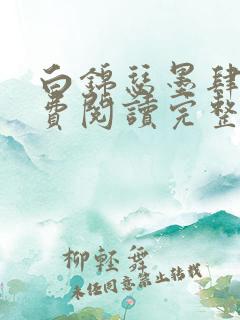 白錦瑟墨肆
費閱讀完整
柳輕舞
未经同意禁止转载